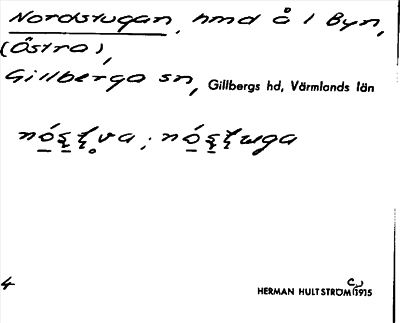 Nordstugan, hmd å 1 Byn,
(Östra),
Gillberga sn, Gillbergs hd, Värmlands län
4
HERMAN HULTSTRÖM 1915